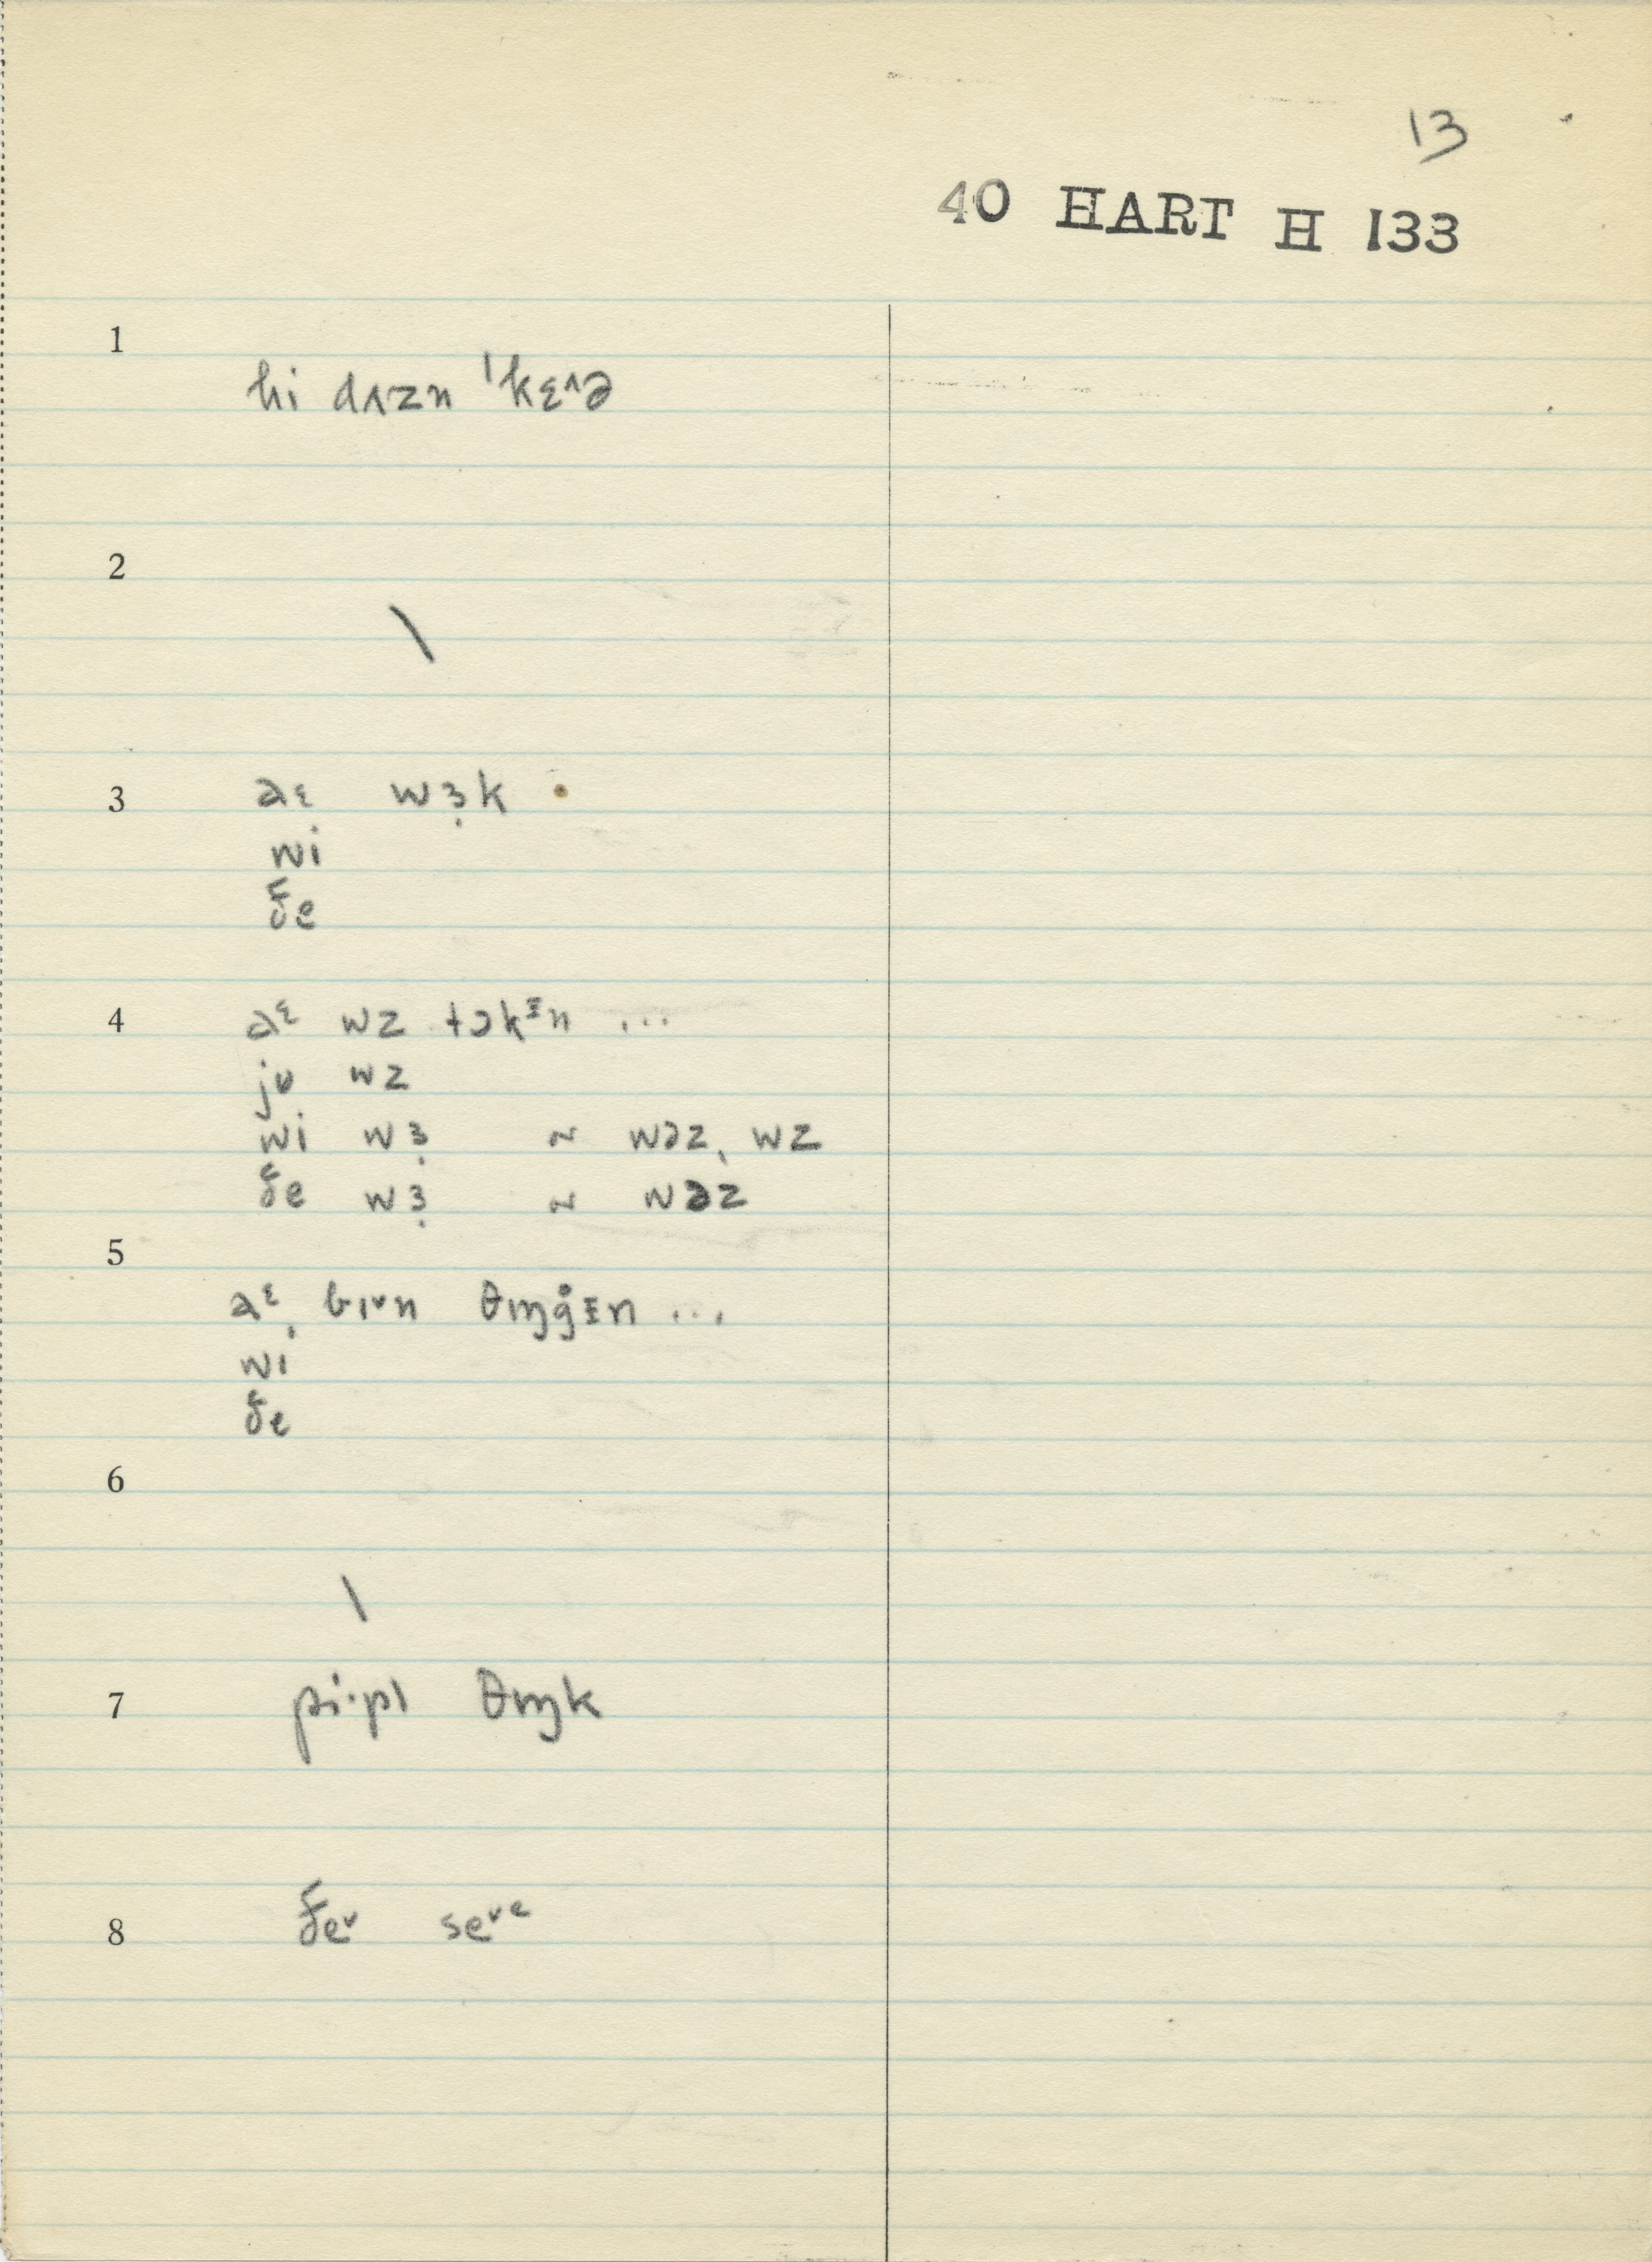 13
40 HART H 133
1
hi dʌzn ˈkɛ˄ə
2
\
3
aᵋ wɜ̣k
wi
ðe
4
aᵋ wz tɔkɪn ...
ju wz
wi wɜ̣ ~ wəz, wz
ðe wɜ̣ ~ wəz
5
aᵋ bɪ˅n θɪŋg̊ɪn ...
wi
ðe
6
\
7
pi·pl θɪŋk
8
ðe˅ se˅ᵉ